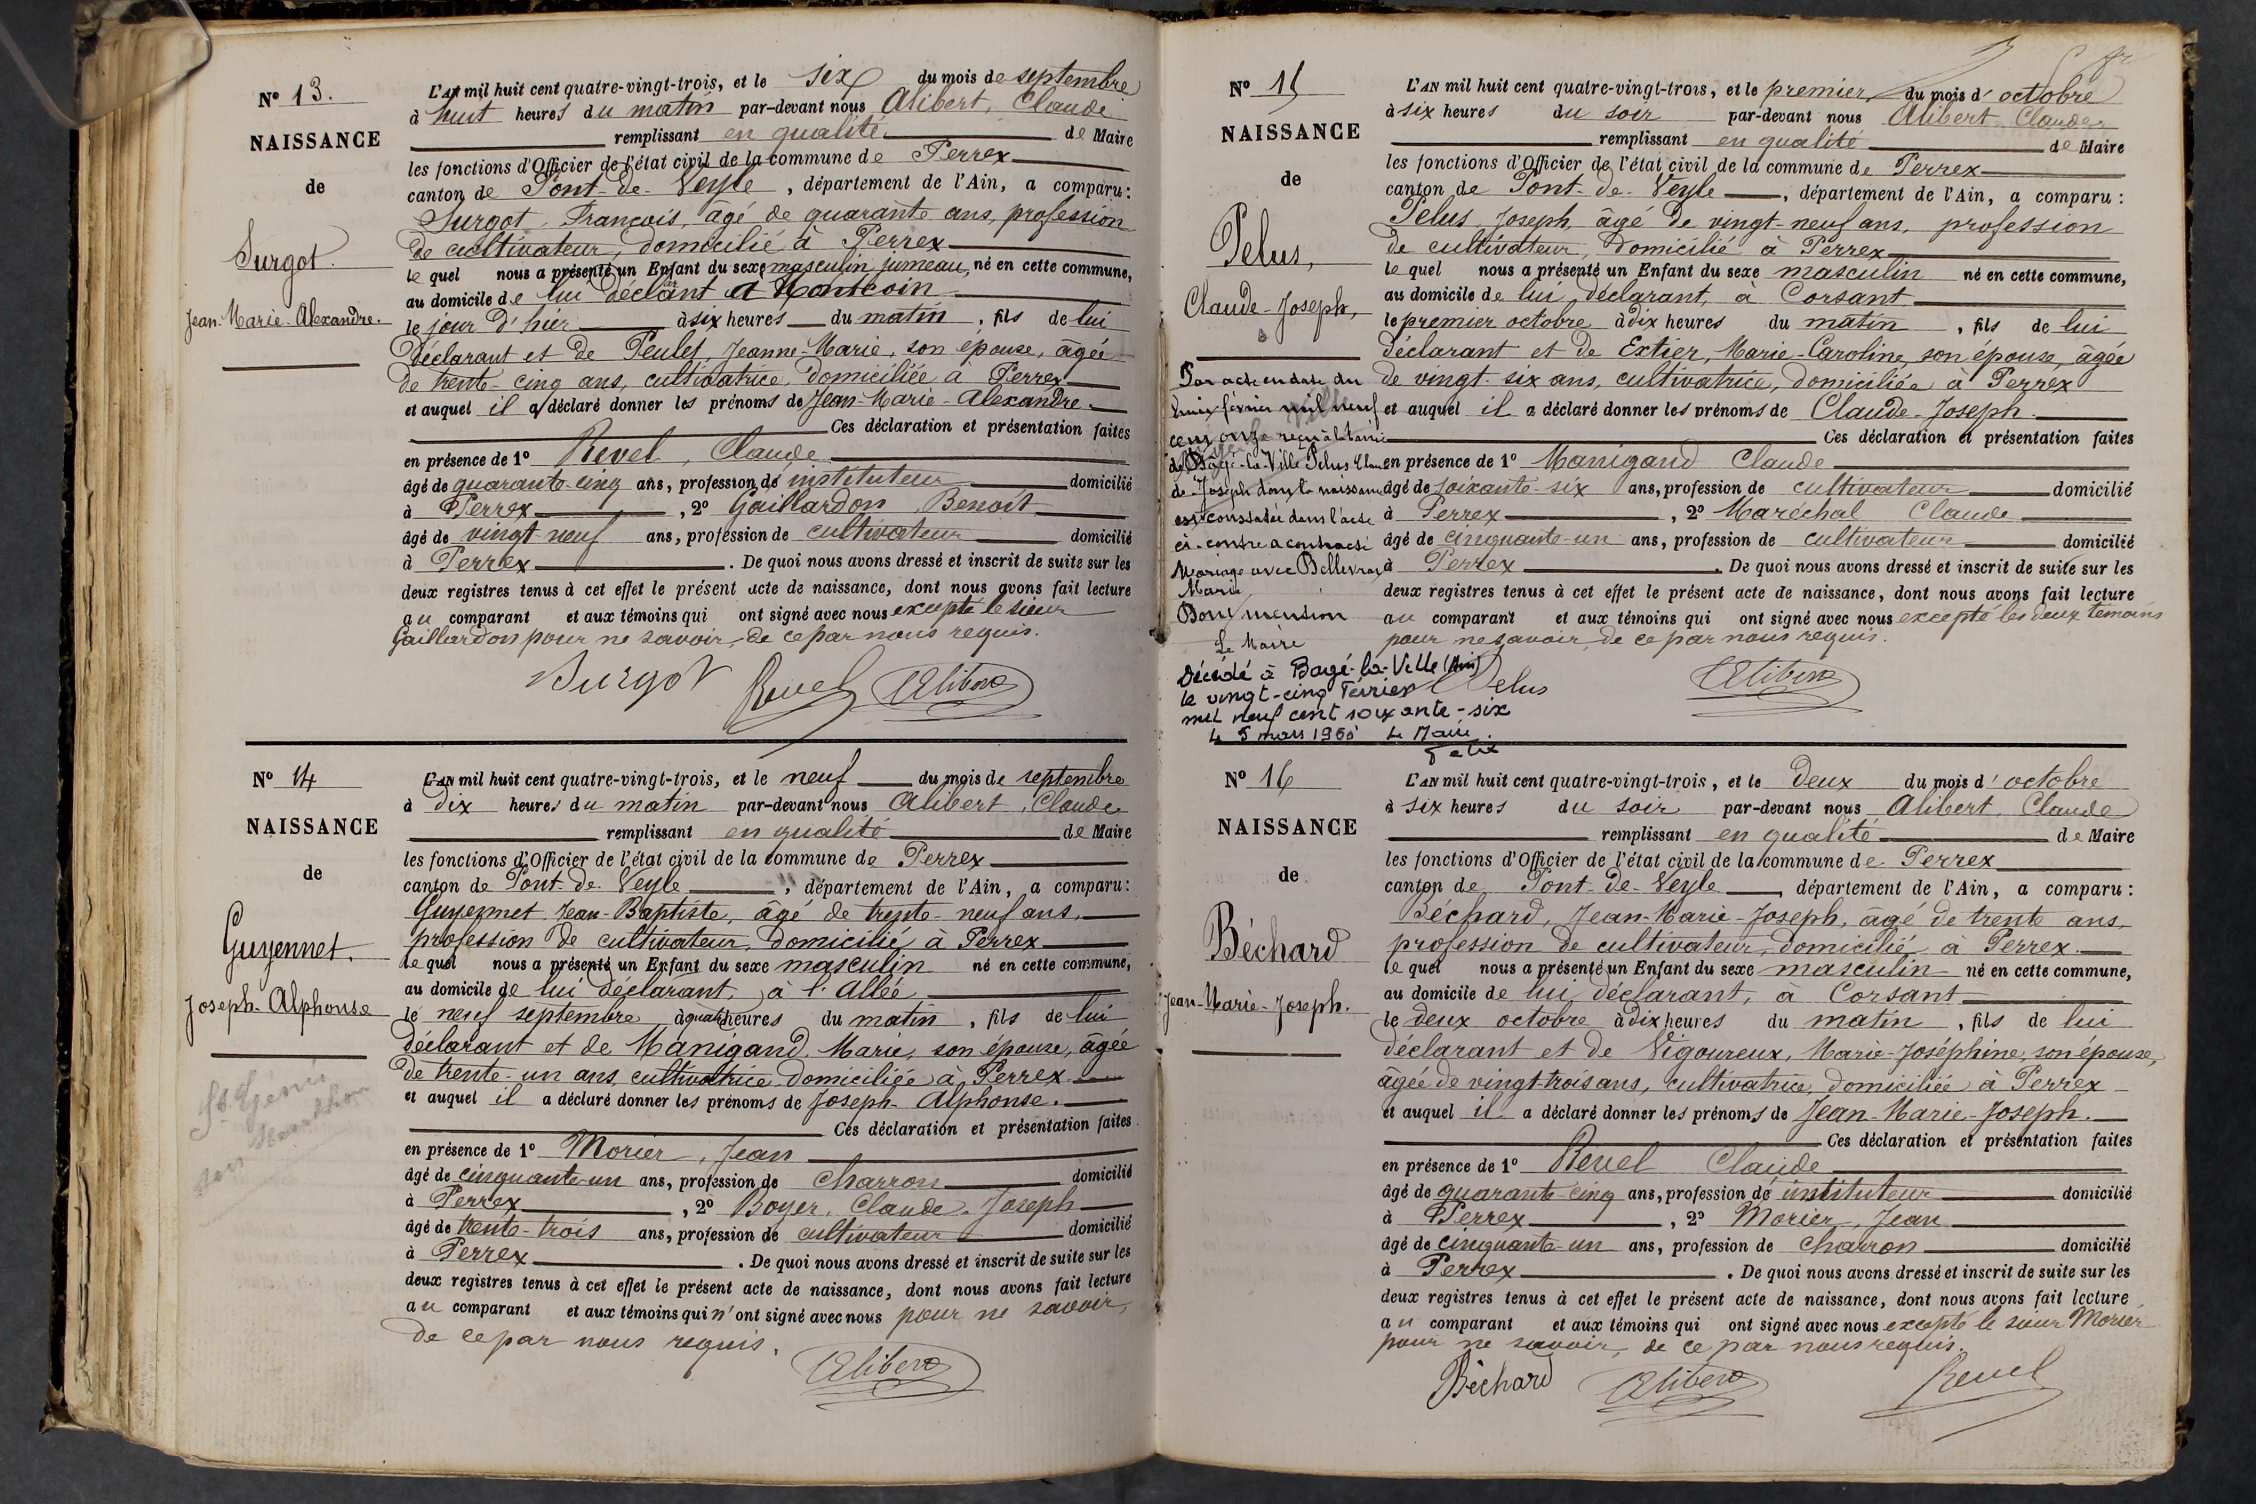 N° 13.
NAISSANCE
de
Surgot
Jean-Marie-Alexandre.
L'AN mil huit cent quatre-vingt-trois, et le six du mois de septembre
à huit heures du matin par-devant nous Alibert, Claude
remplissant en qualité de Maire
les fonctions d'Officier de l'état civil de la commune de Perrex
canton de Pont-de-Veyle, département de l'Ain, a comparu:
Surgot, François, âgé de quarante ans, profession
de cultivateur, domicilié à Perrex
le quel nous a présenté un Enfant du sexe masculin jumeau, né en cette commune,
au domicile de lui déclarant à Montcoin
le jour d'hier à six heures du matin, fils de lui
déclarant et de Peulet, Jeanne-Marie, son épouse, âgée
de trente-cinq ans, cultivatrice, domiciliée à Perrex
et auquel il a déclaré donner les prénoms de Jean-Marie-Alexandre.
Ces déclaration et présentation faites
en présence de 1° Revel, Claude
âgé de quarante-cinq ans, profession de instituteur domicilié
à Perrex, 2° Gaillardon, Benoît
âgé de vingt-neuf ans, profession de cultivateur domicilié
à Perrex. De quoi nous avons dressé et inscrit de suite sur les
deux registres tenus à cet effet le présent acte de naissance, dont nous avons fait lecture
au comparant et aux témoins qui ont signé avec nous excepté le sieur
Gaillardon pour ne savoir, de ce par nous requis.
Surgot Revel Alibert
N° 14
NAISSANCE
de
Guyennet.
Joseph-Alphonse
St Genis
L'AN mil huit cent quatre-vingt-trois, et le neuf du mois de septembre
à dix heures du matin par-devant nous Alibert, Claude
remplissant en qualité de Maire
les fonctions d'Officier de l'état civil de la commune de Perrex
canton de Pont-de-Veyle, département de l'Ain, a comparu:
Guyennet Jean-Baptiste, âgé de trente-neuf ans,
profession de cultivateur, domicilié à Perrex
le quel nous a présenté un Enfant du sexe masculin né en cette commune,
au domicile de lui déclarant, à l'Allée
le neuf septembre à quatre heures du matin, fils de lui
déclarant et de Manigand, Marie, son épouse, âgée
de trente-un ans, cultivatrice domiciliée à Perrex
et auquel il a déclaré donner les prénoms de Joseph-Alphonse.
Ces déclaration et présentation faites
en présence de 1° Morier, Jean
âgé de cinquante-un ans, profession de charron domicilié
à Perrex, 2° Boyer, Claude-Joseph
âgé de trente-trois ans, profession de cultivateur domicilié
à Perrex. De quoi nous avons dressé et inscrit de suite sur les
deux registres tenus à cet effet le présent acte de naissance, dont nous avons fait lecture
au comparant et aux témoins qui n'ont signé avec nous pour ne savoir,
de ce par nous requis.
Alibert
N° 15
NAISSANCE
de
Pelus,
Claude-Joseph,
Par acte en date du
février mil neuf
cent onze reçu à la Mairie
de Bagé-la-Ville Pelus Clau
de-Joseph dont la naissance
est constatée dans l'acte
ci-contre a contracté
Mariage avec Bellevrat
Marie
Pour mention
Le Maire
Décédé à Bagé-la-Ville (Ain)
le vingt-cinq Février
mil neuf cent soixante-six
Le 5 mars 1966 Le Maire.
L'AN mil huit cent quatre-vingt-trois, et le premier du mois d'octobre
à six heures du soir par-devant nous Alibert Claude
remplissant en qualité de Maire
les fonctions d'Officier de l'état civil de la commune de Perrex
canton de Pont-de-Veyle, département de l'Ain, a comparu:
Pelus Joseph, âgé de vingt-neuf ans, profession
de cultivateur, domicilié à Perrex
le quel nous a présenté un Enfant du sexe masculin né en cette commune,
au domicile de lui déclarant, à Corsant
le premier octobre à dix heures du matin, fils de lui
déclarant et de Extier, Marie-Caroline, son épouse, âgée
de vingt-six ans, cultivatrice, domiciliée à Perrex
et auquel il a déclaré donner les prénoms de Claude-Joseph.
Ces déclaration et présentation faites
en présence de 1° Manigand Claude
âgé de soixante-six ans, profession de cultivateur domicilié
à Perrex, 2° Maréchal Claude
âgé de cinquante-un ans, profession de cultivateur domicilié
à Perrex. De quoi nous avons dressé et inscrit de suite sur les
deux registres tenus à cet effet le présent acte de naissance, dont nous avons fait lecture
au comparant et aux témoins qui ont signé avec nous excepté les deux témoins
pour ne savoir, de ce par nous requis.
Pelus Alibert
N° 16
NAISSANCE
de
Béchard
Jean-Marie-Joseph.
L'AN mil huit cent quatre-vingt-trois, et le deux du mois d'octobre
à six heures du soir par-devant nous Alibert, Claude
remplissant en qualité de Maire
les fonctions d'Officier de l'état civil de la commune de Perrex
canton de Pont-de-Veyle, département de l'Ain, a comparu:
Béchard, Jean-Marie-Joseph, âgé de trente ans,
profession de cultivateur, domicilié à Perrex.
le quel nous a présenté un Enfant du sexe masculin né en cette commune,
au domicile de lui déclarant, à Corsant
le deux octobre à dix heures du matin, fils de lui
déclarant et de Vigoureux, Marie-Joséphine, son épouse,
âgée de vingt-trois ans, cultivatrice, domiciliée à Perrex
et auquel il a déclaré donner les prénoms de Jean-Marie-Joseph.
Ces déclaration et présentation faites
en présence de 1° Revel Claude
âgé de quarante-cinq ans, profession de instituteur domicilié
à Perrex, 2° Morier, Jean
âgé de cinquante-un ans, profession de charron domicilié
à Perrex. De quoi nous avons dressé et inscrit de suite sur les
deux registres tenus à cet effet le présent acte de naissance, dont nous avons fait lecture
au comparant et aux témoins qui ont signé avec nous excepté le sieur Morier
pour ne savoir, de ce par nous requis.
Béchard Alibert Revel